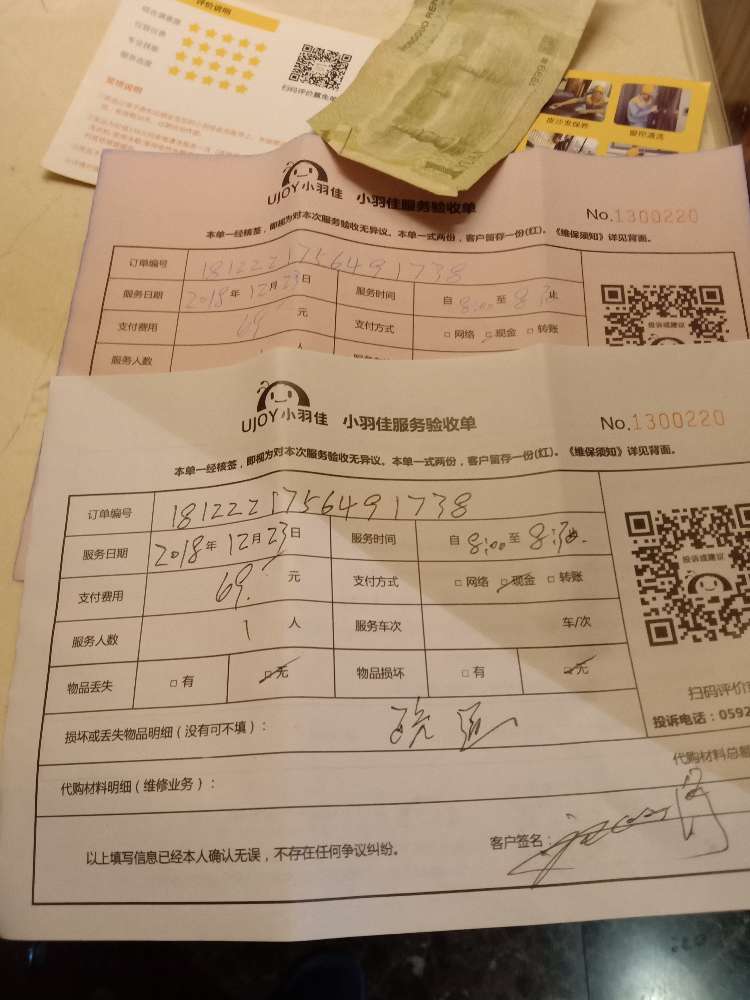 评价说明
综合满意度
服务态度
扫码评价赢免单
奖惩说明
ZHONGGUO REN
皮沙发保养
窗帘清洗
UJOY小羽佳 小羽佳服务验收单
No.1300220
本单一经核签，即视为对本次服务验收无异议。本单一式两份，客户留存一份(红)。《维保须知》详见背面。
订单编号 1812221756491738
服务日期 2018年12月23日 服务时间 自8:00至8:30止
支付费用 69. 元 支付方式 □网络 □现金 □转账
投诉或建议
服务人数
UJOY小羽佳 小羽佳服务验收单
No.1300220
本单一经核签，即视为对本次服务验收无异议。本单一式两份，客户留存一份(红)。《维保须知》详见背面。
订单编号 1812221756491738
服务日期 2018年12月23日 服务时间 自8:00至8:30
支付费用 69. 元 支付方式 □网络 □现金 □转账
投诉或建议
服务人数 1 人 服务车次 车/次
物品丢失 □有 □无 物品损坏 □有 □无
扫码评价
投诉电话：0592
损坏或丢失物品明细（没有可不填）：
代购材料总额
代购材料明细（维修业务）：
以上填写信息已经本人确认无误，不存在任何争议纠纷。 客户签名：